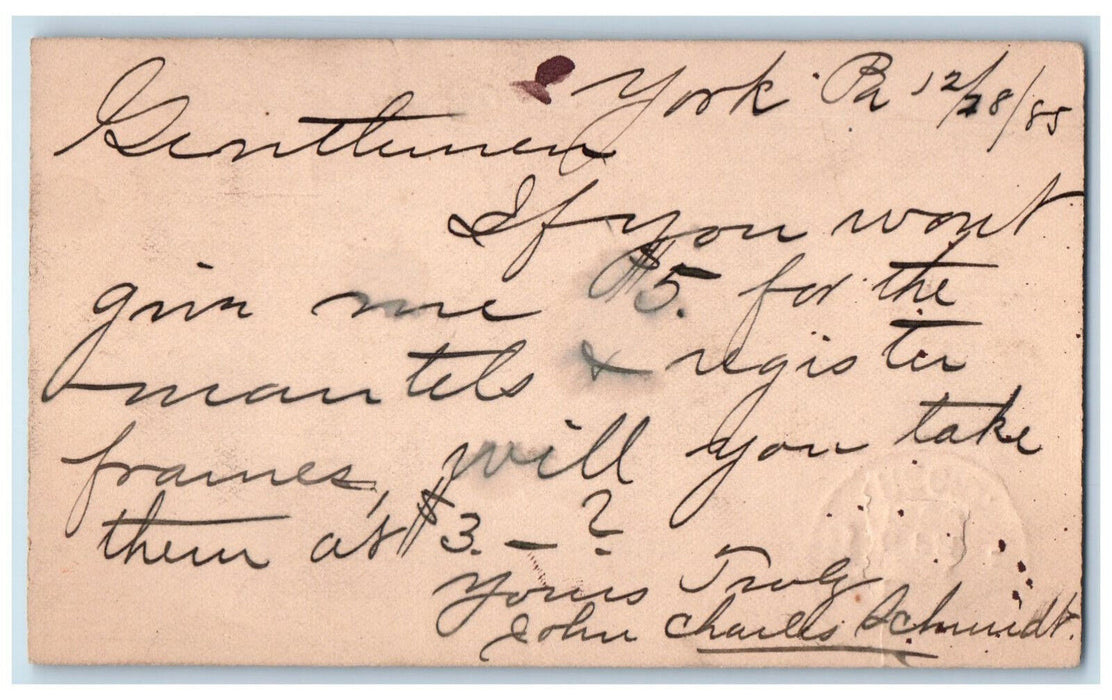 York Pa 12/28/85
Gentlemen
If you wont
give me $5. for the
mantels & register
frames, will you take
them at $3. — ?
Yours Truly
John Charles Schmidt.